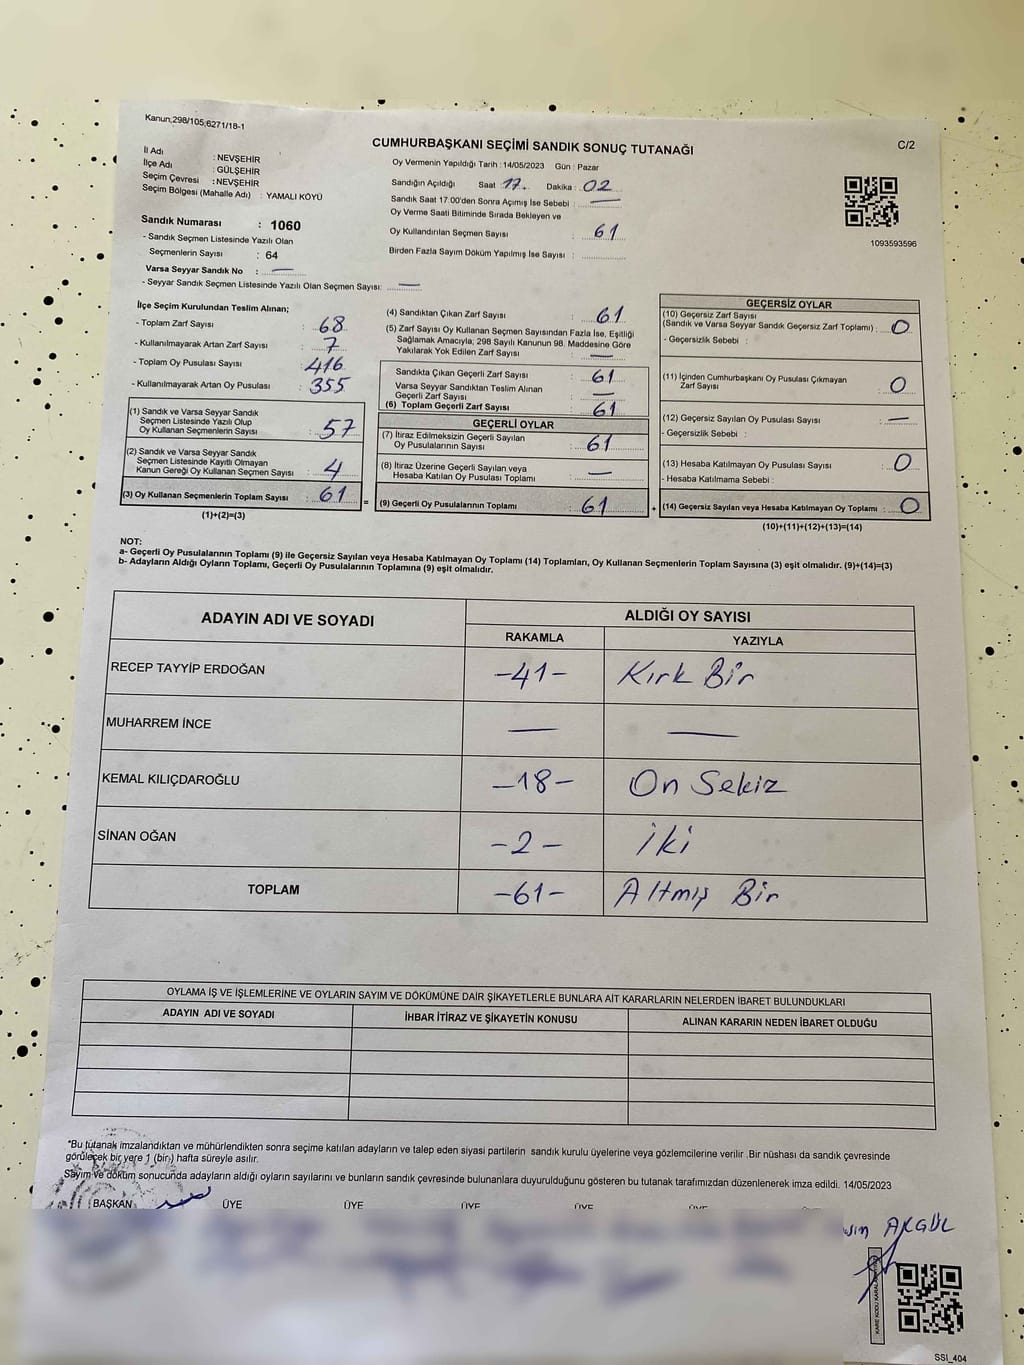 Kanun;298/105;6271/18-1
CUMHURBAŞKANI SEÇİMİ SANDIK SONUÇ TUTANAĞI
C/2
İl Adı : NEVŞEHİR
İlçe Adı : GÜLŞEHİR
Seçim Çevresi : NEVŞEHİR
Seçim Bölgesi (Mahalle Adı) : YAMALI KÖYÜ
Sandık Numarası : 1060
- Sandık Seçmen Listesinde Yazılı Olan
Seçmenlerin Sayısı : 64
Varsa Seyyar Sandık No : —
- Seyyar Sandık Seçmen Listesinde Yazılı Olan Seçmen Sayısı: —
Oy Vermenin Yapıldığı Tarih : 14/05/2023 Gün : Pazar
Sandığın Açıldığı Saat : 17 Dakika : 02
Sandık Saat 17:00'den Sonra Açımış İse Sebebi : —
Oy Verme Saati Bitiminde Sırada Bekleyen ve
Oy Kullandırılan Seçmen Sayısı : 61
Birden Fazla Sayım Döküm Yapılmış İse Sayısı :
1093593596
İlçe Seçim Kurulundan Teslim Alınan;
- Toplam Zarf Sayısı : 68
- Kullanılmayarak Artan Zarf Sayısı : 7
- Toplam Oy Pusulası Sayısı : 416
- Kullanılmayarak Artan Oy Pusulası : 355
(1) Sandık ve Varsa Seyyar Sandık
Seçmen Listesinde Yazılı Olup
Oy Kullanan Seçmenlerin Sayısı : 57
(2) Sandık ve Varsa Seyyar Sandık
Seçmen Listesinde Kayıtlı Olmayan
Kanun Gereği Oy Kullanan Seçmen Sayısı : 4
(3) Oy Kullanan Seçmenlerin Toplam Sayısı : 61 =
(1)+(2)=(3)
(4) Sandıktan Çıkan Zarf Sayısı : 61
(5) Zarf Sayısı Oy Kullanan Seçmen Sayısından Fazla İse, Eşitliği
Sağlamak Amacıyla; 298 Sayılı Kanunun 98. Maddesine Göre
Yakılarak Yok Edilen Zarf Sayısı : —
Sandıkta Çıkan Geçerli Zarf Sayısı : 61
Varsa Seyyar Sandıktan Teslim Alınan
Geçerli Zarf Sayısı : —
(6) Toplam Geçerli Zarf Sayısı : 61
GEÇERLİ OYLAR
(7) İtiraz Edilmeksizin Geçerli Sayılan
Oy Pusulalarının Sayısı : 61
(8) İtiraz Üzerine Geçerli Sayılan veya
Hesaba Katılan Oy Pusulası Toplamı : —
(9) Geçerli Oy Pusulalarının Toplamı : 61 +
GEÇERSİZ OYLAR
(10) Geçersiz Zarf Sayısı
(Sandık ve Varsa Seyyar Sandık Geçersiz Zarf Toplamı) : 0
- Geçersizlik Sebebi :
(11) İçinden Cumhurbaşkanı Oy Pusulası Çıkmayan
Zarf Sayısı : 0
(12) Geçersiz Sayılan Oy Pusulası Sayısı : —
- Geçersizlik Sebebi :
(13) Hesaba Katılmayan Oy Pusulası Sayısı : 0
- Hesaba Katılmama Sebebi :
(14) Geçersiz Sayılan veya Hesaba Katılmayan Oy Toplamı : 0
(10)+(11)+(12)+(13)=(14)
NOT:
a- Geçerli Oy Pusulalarının Toplamı (9) ile Geçersiz Sayılan veya Hesaba Katılmayan Oy Toplamı (14) Toplamları, Oy Kullanan Seçmenlerin Toplam Sayısına (3) eşit olmalıdır. (9)+(14)=(3)
b- Adayların Aldığı Oyların Toplamı, Geçerli Oy Pusulalarının Toplamına (9) eşit olmalıdır.
ADAYIN ADI VE SOYADI ALDIĞI OY SAYISI
RAKAMLA YAZIYLA
RECEP TAYYİP ERDOĞAN -41- Kırk Bir
MUHARREM İNCE — —
KEMAL KILIÇDAROĞLU -18- On Sekiz
SİNAN OĞAN -2- İki
TOPLAM -61- Altmış Bir
OYLAMA İŞ VE İŞLEMLERİNE VE OYLARIN SAYIM VE DÖKÜMÜNE DAİR ŞİKAYETLERLE BUNLARA AİT KARARLARIN NELERDEN İBARET BULUNDUKLARI
ADAYIN ADI VE SOYADI İHBAR İTİRAZ VE ŞİKAYETİN KONUSU ALINAN KARARIN NEDEN İBARET OLDUĞU
*Bu tutanak imzalandıktan ve mühürlendikten sonra seçime katılan adayların ve talep eden siyasi partilerin sandık kurulu üyelerine veya gözlemcilerine verilir .Bir nüshası da sandık çevresinde
görülecek bir yere 1 (bir) hafta süreyle asılır.
Sayım ve döküm sonucunda adayların aldığı oyların sayılarını ve bunların sandık çevresinde bulunanlara duyurulduğunu gösteren bu tutanak tarafımızdan düzenlenerek imza edildi. 14/05/2023
BAŞKAN ÜYE ÜYE ÜYE ÜYE ÜYE
AKGÜL
SSI_404